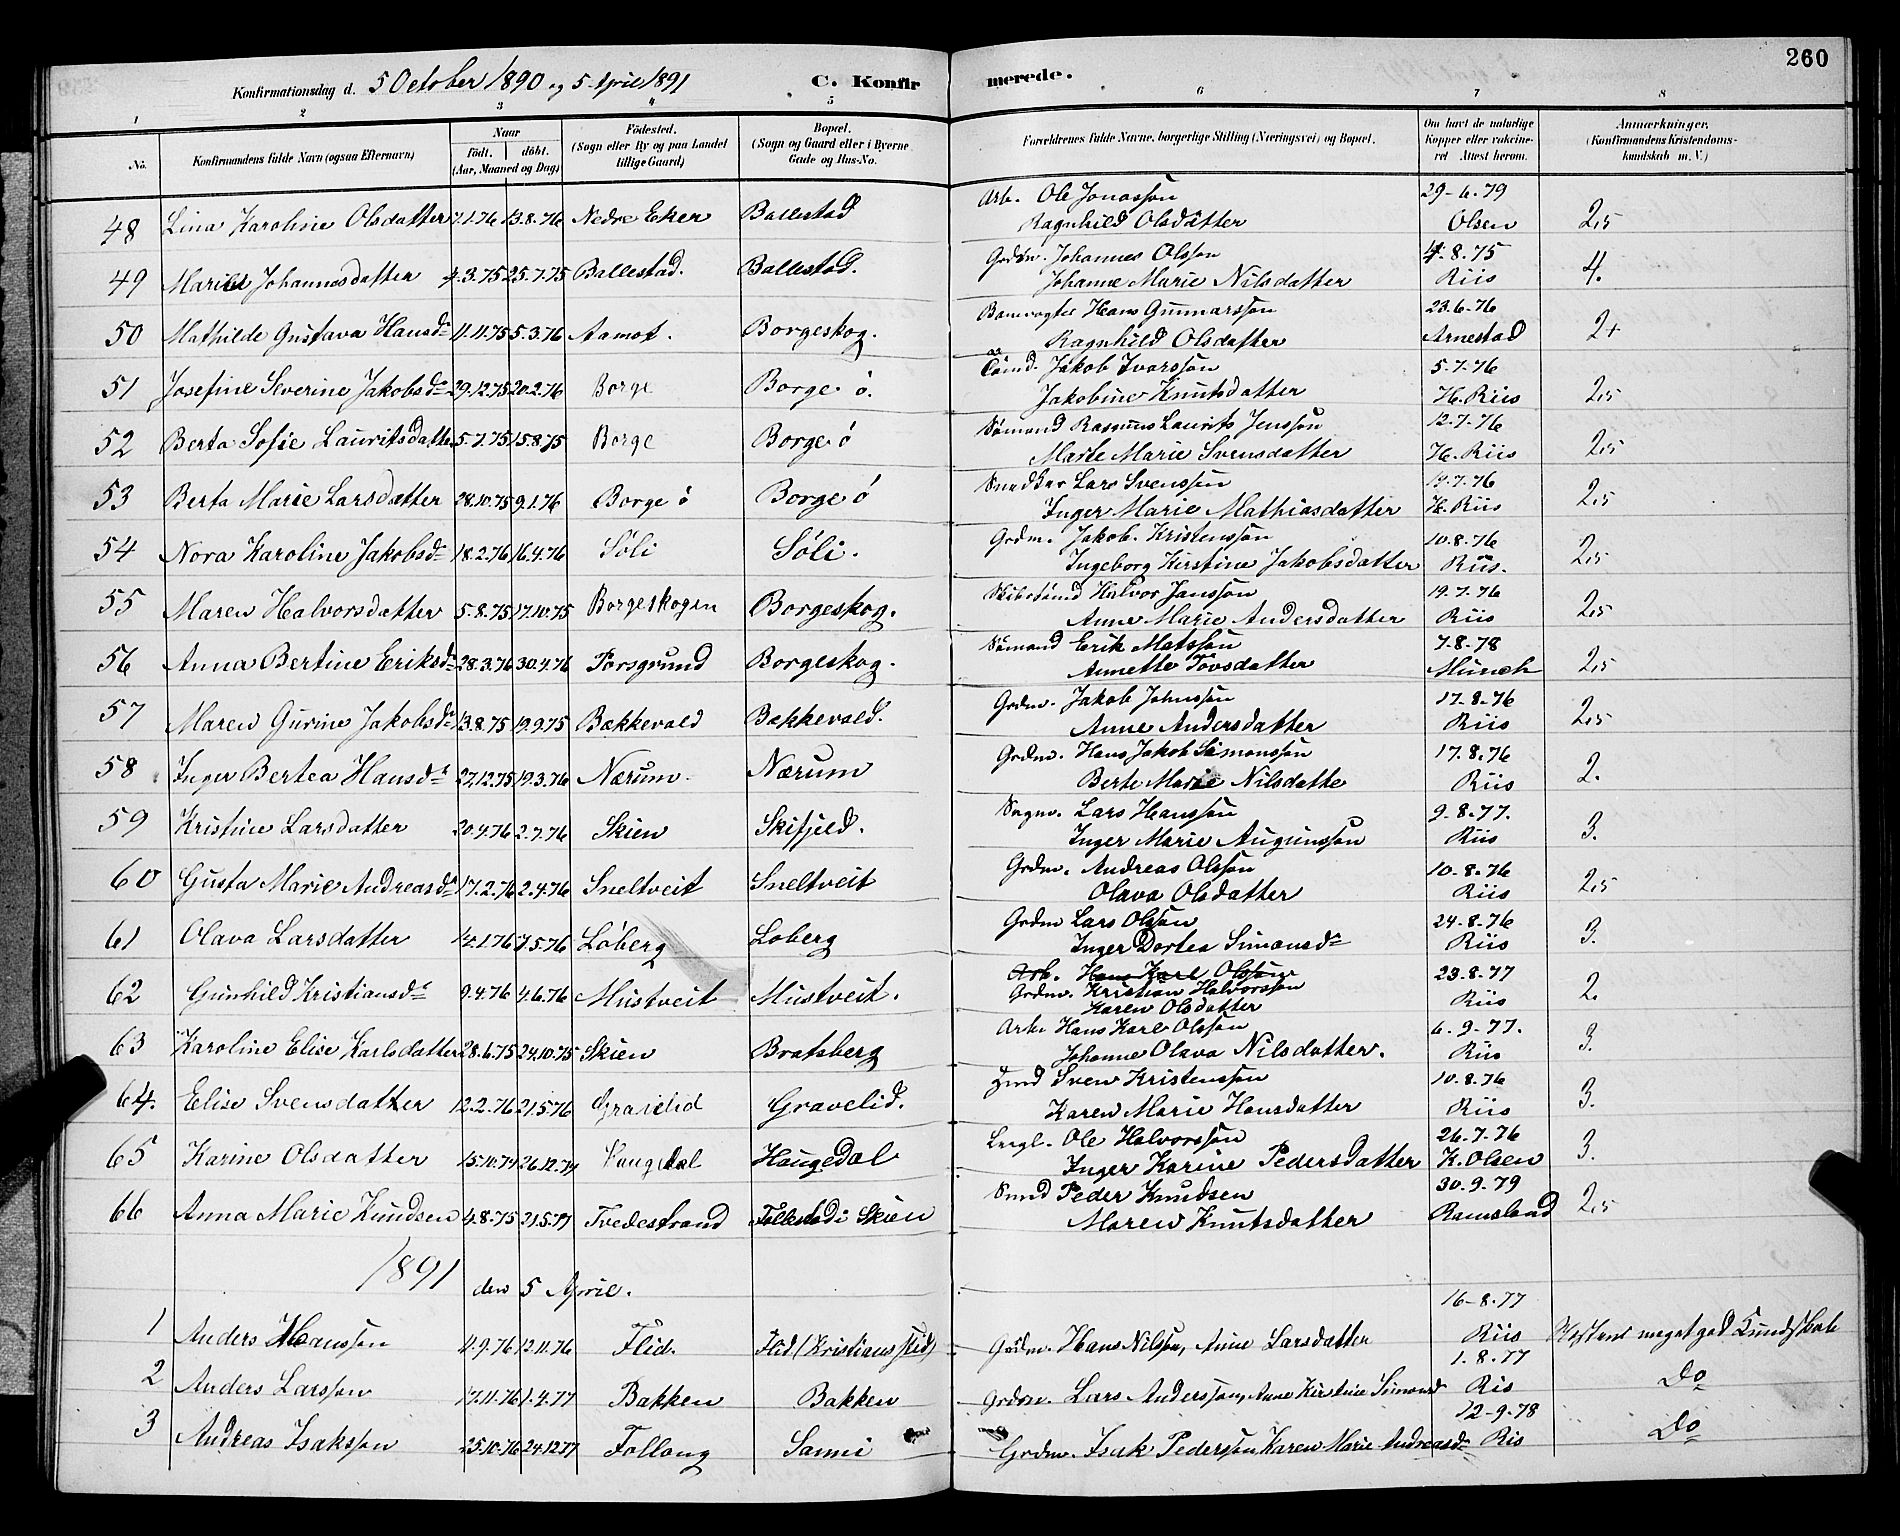 260
Konfirmationsdag d. 5 October 1890 og 5 April 1891 C. Konfirmerede.
1 2 3 4 5 6 7 8
No. Konfirmandens fulde Navn (ogsaa Efternavn) Naar født. døbt. (Aar, Maaned og Dag) Fødested. (Sogn eller By og paa Landet tillige Gaard) Bopæl. (Sogn og Gaard eller i Byerne Gade og Hus-No. Forældrenes fulde Navne, borgerlige Stilling (Næringsvei) og Bopæl. Om havt de naturlige Kopper eller vakcineret Attest herom. Anmærkninger. (Konfirmandens Kristendomskundskab m. V.)
48 Lina Karoline Olsdatter 7.1.76 13.8.76 Nedre Eker Ballestad Arb. Ole Jonassøn 29-6.79
Ragnhild Olsdatter Olsen 2,5
49 Marie Johannesdatter 4.3.75 25.7.75 Ballestad. Ballestad. Grdm. Johannes Olsson 4.8.75
Johanne Marie Nilsdatter Riis 4.
50 Mathilde Gustava Hansdr 11.11.75 5.3.76 Aamot. Borgeskog. Bomvogter Hans Gunnarssøn 23.6.76
Ragnhild Olsdatter Arnestad 2+
51 Josefine Severine Jakobsdr 29.12.75 20.2.76 Borge Borge ø. Jakob Ivarssøn 5.7.76
Jakobine Knutsdatter H. Riis 2,5
52 Berta Sofie Lauritsdatter 5.7.75 15.8.75 Borge Borge ø Sømand Rasmus Laurits Jenssøn 12.7.76
Marte Marie Svensdatter H. Riis 2,5
53 Berta Marie Larsdatter 28.10.75 9.1.76 Borge ø Borge ø Snedker Lars Svenssøn 17.7.76
Inger Marie Mathiasdatter H. Riis 2,5
54 Nora Karoline Jakobsdr 18.2.76 16.4.76 Søli Søli. Grdm. Jakob. Kristenssøn 10.8.76
Ingeborg Kirstine Jakobsdatter Riis. 2,5
55 Maren Halvorsdatter 5.8.75 17.10.75 Borgeskogen Borgeskog. Skibstømd Halvor Janssøn 19.7.76
Anne Marie Andersdatter Riis 2,5
56 Anna Bertine Eriksdr 28.3.76 30.4.76 Porsgrund Borgeskog. Sømand Erik Matssøn 7.8.78
Annette Tovsdatter Münch 2,5
57 Maren Gurine Jakobsdr 13.8.75 19.9.75 Bakkevold Bakkevold. Grdm. Jakob Johnssøn 17.8.76
Anne Andersdatter Riis 2,5
58 Inger Bertea Hansdr 27.12.75 19.3.76 Nærum. Nærum Grdm. Hans Jakob Simonssøn 17.8.76
Berte Marie Nilsdatte Riis 2.
59 Kristine Larsdatter 20.4.76 2.7.76 Skien Skifjeld. Sagm. Lars Hanssøn 9.8.77.
Inger Marie Augunssøn Riis 3.
60 Gusta Marie Andreasdr 17.2.76 2.4.76 Sneltveit Sneltveit Grdm. Andreas Olssøn 10.8.76
Olava Olsdatter Riis 2,5
61 Olava Larsdatter 14.1.76 7.5.76 Løberg Loberg Grdm Lars Olssøn 24.8.76
Inger Dortea Simonsdr Riis 3.
62 Gunhild Kristiansdr 9.4.76 4.6.76 Mustveit Mustveit. Arb. Hans Karl Olssøn 23.8.77
Grdm. Kristian Halvorssøn Riis 2.
Karen Olsdatter
63 Karoline Elise Karlsdatter 28.6.75 24.10.75 Skien Bratsberg Arb. Hans Karl Olssøn 6.9.77.
Johanne Olava Nilsdatter. Riis 3.
64. Elise Svensdatter 12.2.76 21.5.76 Gravelid Gravelid. Sven Kristenssøn 10.8.76
Karen Marie Hansdatter Riis 3.
65 Karine Olsdatter 15.10.74 26.12.74 Haugedal Leægl. Ole Halvorssøn 26.7.76
Inger Karine Pedersdatter K. Olsen 3.
66 Anna Marie Knudsen 4.8.75 21.5.77 Tvedestrand Follestad i Skien Smed Peder Knudsen 30.9.79
Maren Knutsdatter Ramsland 2,5
1891 den 5 April.
16-8.77
1 Anders Hanssøn 11.9.76 12.11.76 Flid. Flid (Kristians flid) Grdm. Hans Nilssøn, Anne Larsdatter Riis meget god Kundskab
1.8.77
2 Anders Larssøn 17.11.76 1.4.77 Bakken Bakken Grdm. Lars Anderssøn, Anne Kirstine Simonsd Ris Do
12-9.78
3 Andreas Isakssøn 25.10.76 24.12.77 Follaug Sanni Grdm. Isak Pederssøn Karen Marie Andreasdr Ris Do